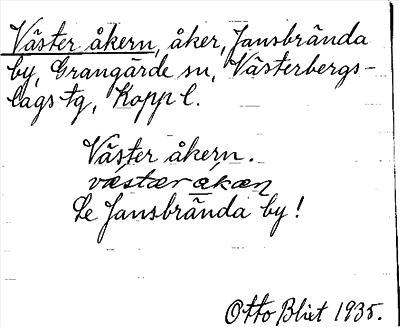 Väster åkern, åker, Jansbrända
by, Grangärde sn, Västerbergs-
lags tg, Kopp l.
Väster åkern.
væstær åkæn
Se Jansbrända by!
Otto Blixt 1935.